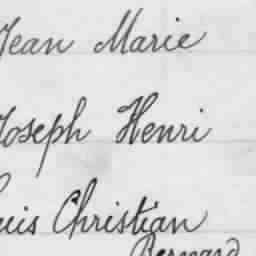 Jean Marie
Joseph Henri
Christian
Bernard